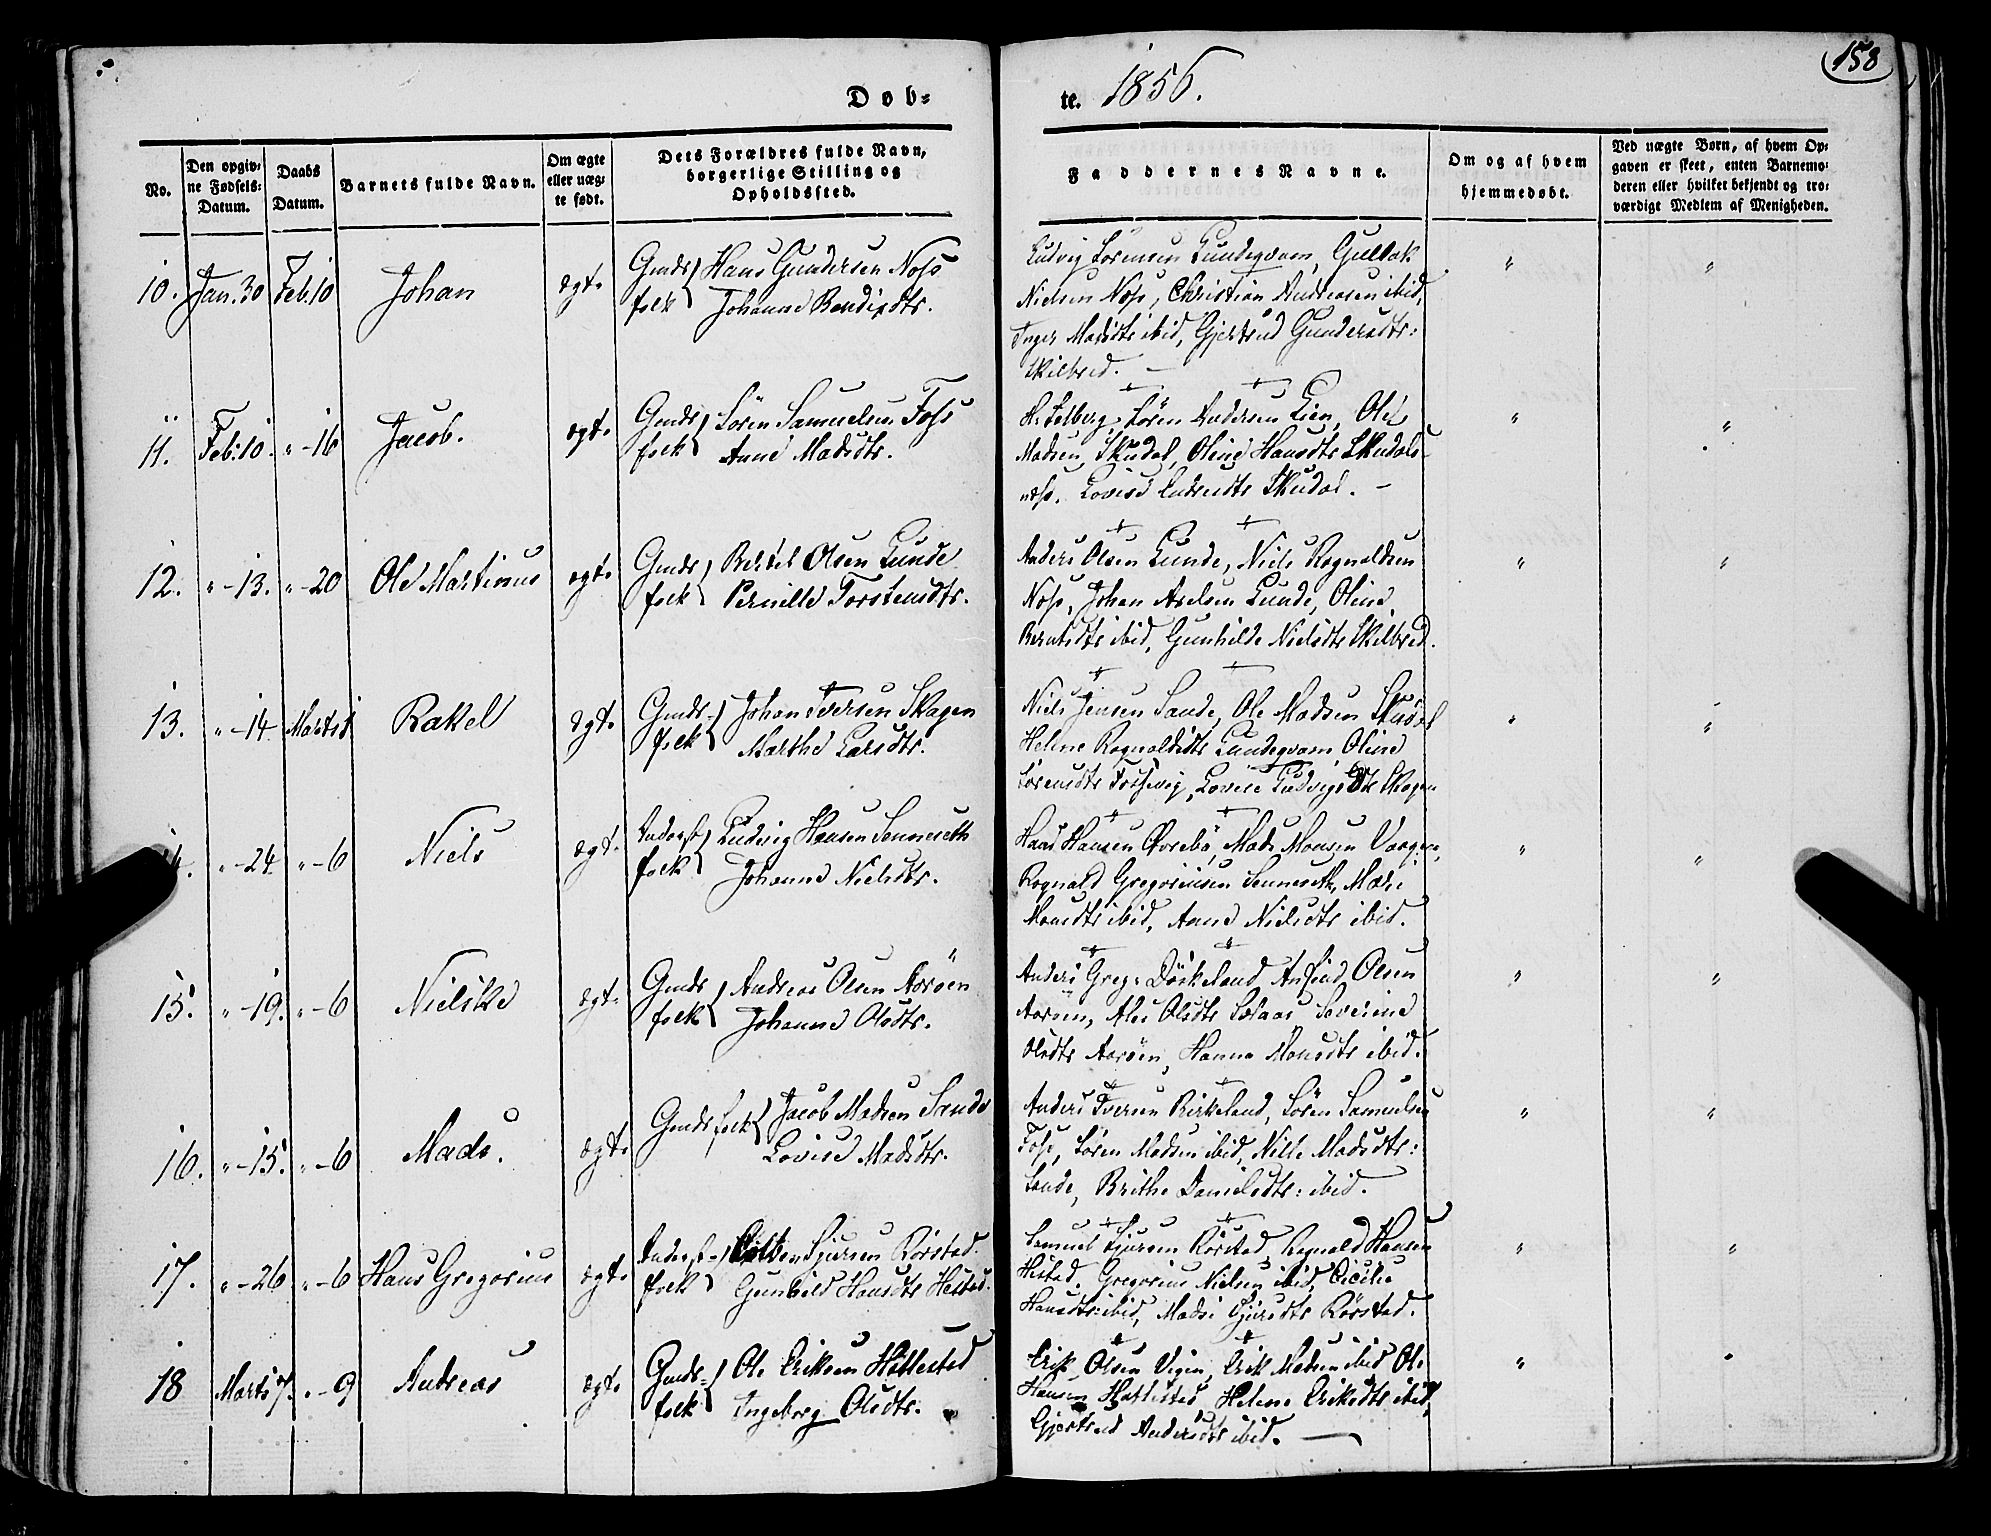 158
Døb-
te. 1856.
No.
Den opgiv-
ne Fødsels-
Datum.
Daabs
Datum.
Barnets fulde Navn.
Om ægte
eller uæg-
te født.
Dets Forældres fulde Navn,
borgerlige Stilling og
Opholdssted.
Faddernes Navne.
Om og af hvem
hjemmedøbt.
Ved uægte Børn, af hvem Op-
gaven er skeet, enten Barnemo-
deren eller hvilket bekjendt og tro-
værdigt Medlem af Menigheden.
10. Jan. 30 Feb. 10 Johan ægt.
Gmds folk { Hans Gundersen Noss
Johanne Bendixdtr.
Ludvig Sørensen Lundeqvam, Gullak
Nielsen Noss, Christian Andreasen ibid,
Inger Madsdtr ibid, Gjertrud Gundersdtr:
Skilbred. —
11. Feb. 10. " - 16 Jacob. ægt.
Gmds folk { Søren Samuelsen Foss
Anne Madsdtr.
H. Selberg, Søren Andersen Lien, Ole
Madsen Skudal, Oline Hansdtr Skudals-
næss. Lovise Endresdtr Skudal. —
12. " - 13. " - 20 Ole Martinus ægt.
Gmds folk { Bertel Olsen Lunde
Pernille Torstensdtr.
Anders Olsen Lunde, Niels Rognaldsen
Noss, Johan Axelsen Lunde, Oline
Berntsdtr ibid, Gunhilde Nielsdtr Skilbred.
13. " - 14. Marts 1 Rakel ægt.
Gmds- folk { Johan Iversen Skagen
Marthe Larsdtr.
Niels Jensen Sande, Ole Madsen Skudal
Helene Rognaldsdtr Lundeqvam, Oline
Sørensdtr Fossevig, Lovise Ludvigsdtr Skagen
" - 24. " - 6 Niels ægt.
folk { Ludvig Hansen Senneseth
Johanne Nielsdtr.
Hans Hansen Øvrebø, Mads Monsen
Rognald Gregoriusen Senneseth,
Monsdtr ibid, Anne Nielsdtr ibid.
15. " - 19. " - 6 Nielske ægt.
Gmds folk { Andreas Olsen Aarøen
Johanne Olsdtr.
Anders Greg: Døskeland, Anfind Olsen
Aarøen, Olsdtr Severine
Olsdtr Aarøen, Hanna Monsdtr ibid.
16. " - 15. " - 6 Mads. ægt.
Gmds folk { Jacob Madsen Sande
Lovise Madsdtr.
Anders Iversen Birkeland, Søren Samuelsen
Foss, Søren Madsen ibid, Nille Madsdtr:
Sande, Brithe Danielsdtr: ibid.
17. " - 26 " - 6 Hans Gregorius ægt.
folk { Sjursen Rørstad
Gunhild Hansdtr Hestad.
Samuel Sjursen Rørstad, Rognald Hansen
Hestad. Gregorius Nielsen ibid, Cicilie
Hansdtr: ibid, Madsi Sjursdtr Rørstad.
18 Marts 7. " - 9 Andreas ægt.
Gmds- folk { Ole Eriksen Hattestad
Ingeborg Olsdtr.
Erik Olsen Vigen, Erik Madsen ibid Ole
Hansen Hattestad, Helene Eriksdtr ibid,
Gjertrud Andersdtr ibid. —